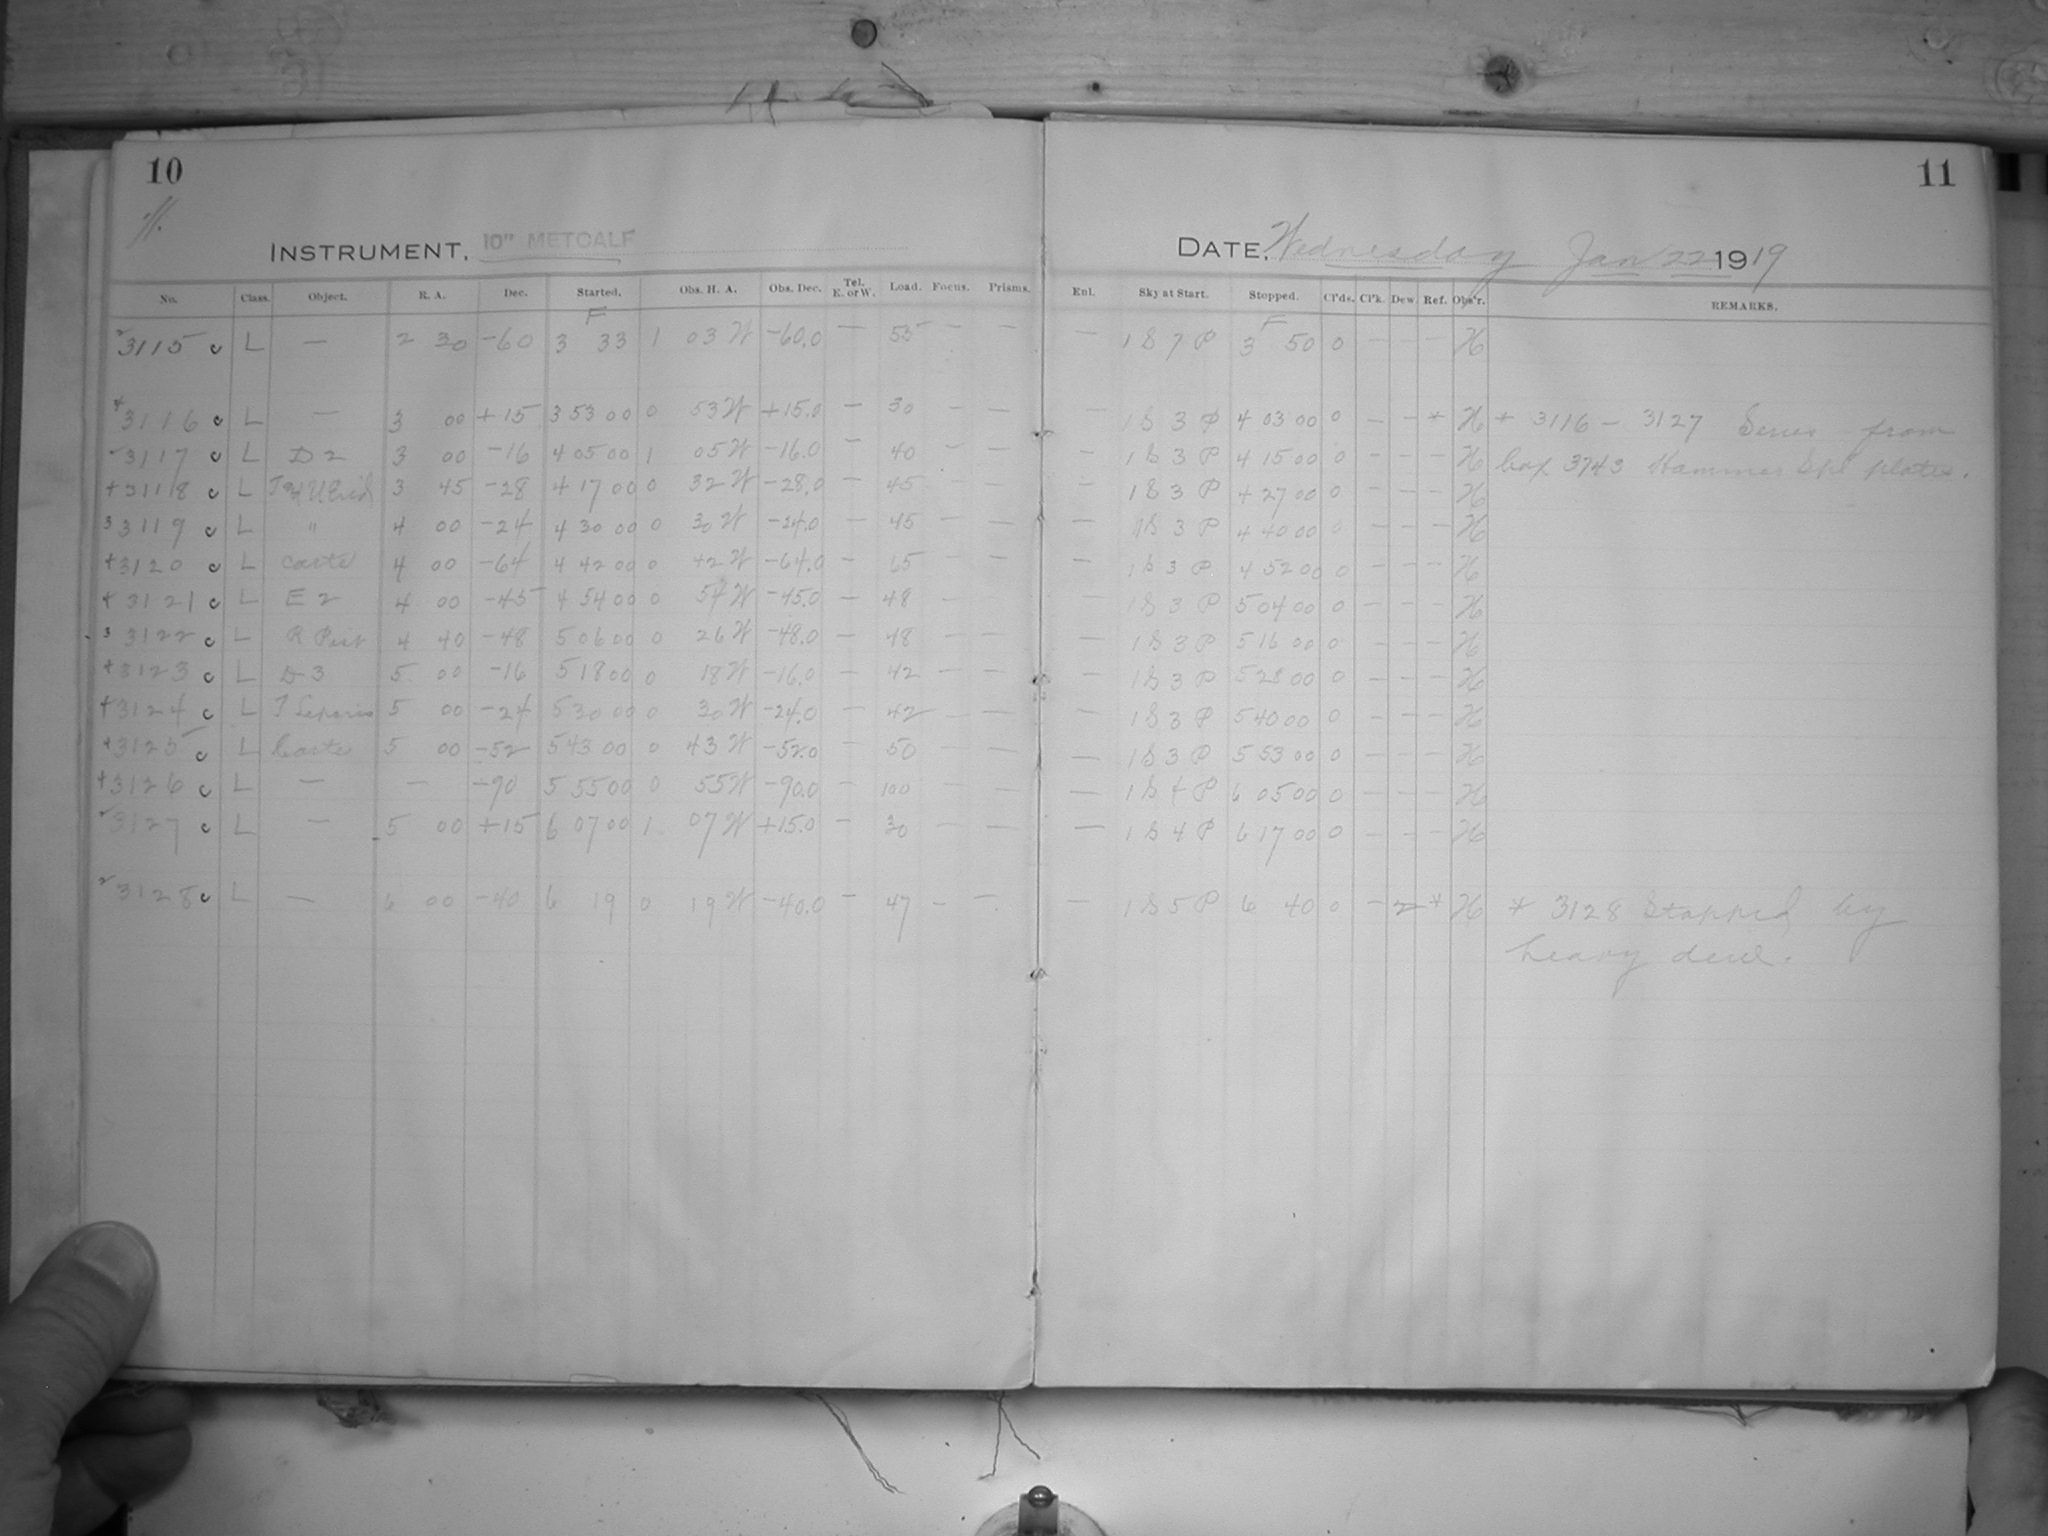 10
11
INSTRUMENT, 10" METCALF
DATE, Wednesday Jan 22 1919
No. Class. Object. R. A. Dec. Started. Obs. H. A. Obs. Dec. Tel. E. or W. Load. Focus. Prisms. Enl. Sky at Start. Stopped. Cl'ds. Cl'k. Dew. Ref. Obs'r. REMARKS.
F F
2 3115 c L — 2 30 -60 3 33 1 03 W -60.0 — 55 — — — 1 S 7 P 3 50 0 — — — H
4 3116 c L — 3 00 +15 3 53 00 0 53 W +15.0 — 30 — — — 1 S 3 P 4 03 00 0 — — * H * 3116 - 3127 Series from
3117 c L D 2 3 00 -16 4 05 00 1 05 W -16.0 — 40 — — — 1 S 3 P 4 15 00 0 — — — H box 3743 Hammer Spl plates.
4 3118 c L 3 45 -28 4 17 00 0 32 W -28.0 — 45 — — — 1 S 3 P 4 27 00 0 — — — H
3 3119 c L " 4 00 -24 4 30 00 0 30 W -24.0 — 45 — — — 1 S 3 P 4 40 00 0 — — — H
4 3120 c L Carte 4 00 -64 4 42 00 0 42 W -64.0 — 65 — — — 1 S 3 P 4 52 00 0 — — — H
4 3121 c L E 2 4 00 -45 4 54 00 0 54 W -45.0 — 48 — — — 1 S 3 P 5 04 00 0 — — — H
3 3122 c L R Pict 4 40 -48 5 06 00 0 26 W -48.0 — 48 — — — 1 S 3 P 5 16 00 0 — — — H
4 3123 c L D 3 5 00 -16 5 18 00 0 18 W -16.0 — 42 — — — 1 S 3 P 5 28 00 0 — — — H
4 3124 c L T Leporis 5 00 -24 5 30 00 0 30 W -24.0 — 42 — — — 1 S 3 P 5 40 00 0 — — — H
4 3125 c L Carte 5 00 -52 5 43 00 0 43 W -52.0 — 50 — — — 1 S 3 P 5 53 00 0 — — — H
4 3126 c L — — -90 5 55 00 0 55 W -90.0 — 100 — — — 1 S 4 P 6 05 00 0 — — — H
2 3127 c L — 5 00 +15 6 07 00 1 07 W +15.0 — 30 — — — 1 S 4 P 6 17 00 0 — — — H
2 3128 c L — 6 00 -40 6 19 0 19 W -40.0 — 47 — — — 1 S 5 P 6 40 0 — 2 * H * 3128 Stopped by
heavy dew.